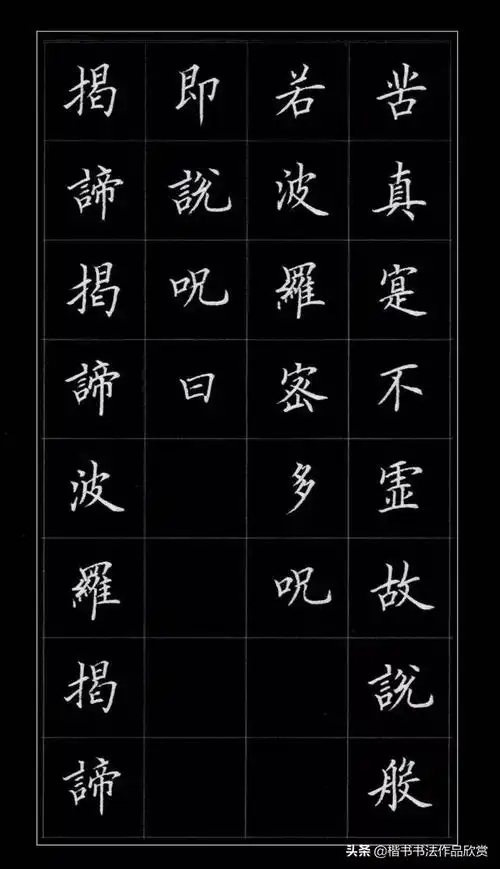 苦真寔不虚故說般
若波羅密多呪
即說呪曰
揭諦揭諦波羅揭諦
头条 @楷书书法作品欣赏